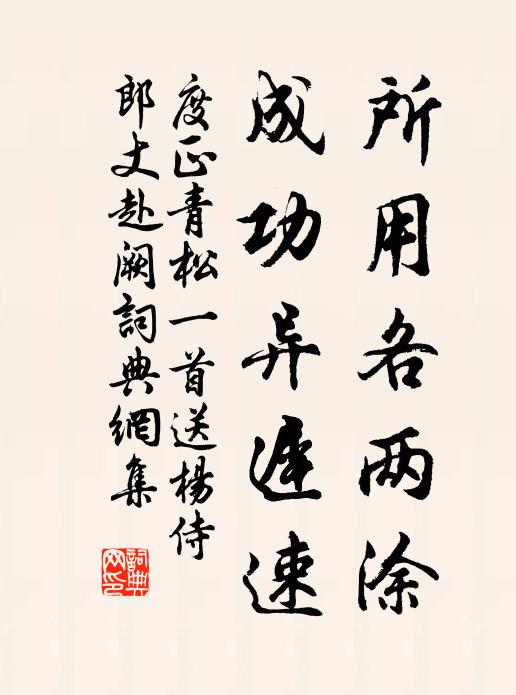 所用各两涂
成功异迟速
度正青松一首送楊侍
郎丈赴阙詞典網集
詞典网印